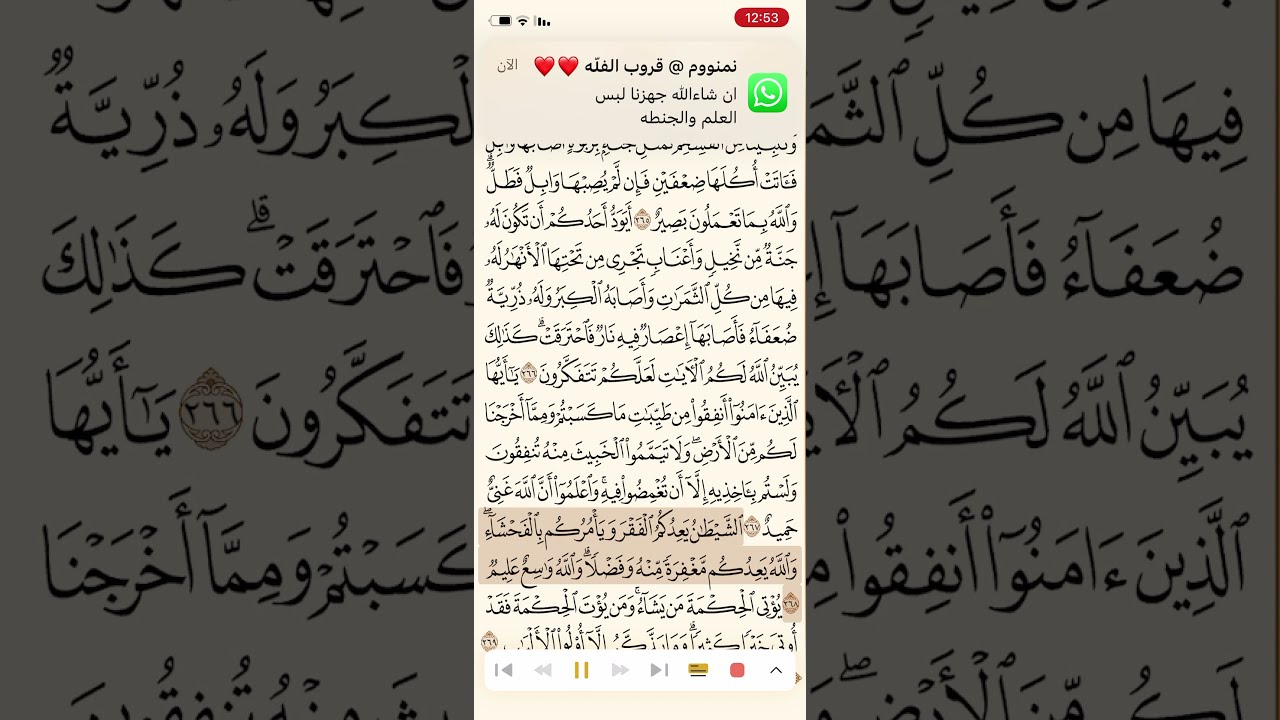 12:53
نمنووم @ قروب الفلّه ❤️❤️
الآن
ان شاءالله جهزنا لبس
العلم والجنطه
فَـَٔاتَتْ أُكُلَهَا ضِعْفَيْنِ فَإِن لَّمْ يُصِبْهَا وَابِلٌ فَطَلٌّ ۗ
وَٱللَّهُ بِمَا تَعْمَلُونَ بَصِيرٌ ٢٦٥ أَيَوَدُّ أَحَدُكُمْ أَن تَكُونَ لَهُۥ
جَنَّةٌ مِّن نَّخِيلٍ وَأَعْنَابٍ تَجْرِى مِن تَحْتِهَا ٱلْأَنْهَٰرُ لَهُۥ
فِيهَا مِن كُلِّ ٱلثَّمَرَٰتِ وَأَصَابَهُ ٱلْكِبَرُ وَلَهُۥ ذُرِّيَّةٌ
ضُعَفَآءُ فَأَصَابَهَآ إِعْصَارٌ فِيهِ نَارٌ فَٱحْتَرَقَتْ ۗ كَذَٰلِكَ
يُبَيِّنُ ٱللَّهُ لَكُمُ ٱلْـَٔايَٰتِ لَعَلَّكُمْ تَتَفَكَّرُونَ ٢٦٦ يَٰٓأَيُّهَا
ٱلَّذِينَ ءَامَنُوٓا۟ أَنفِقُوا۟ مِن طَيِّبَٰتِ مَا كَسَبْتُمْ وَمِمَّآ أَخْرَجْنَا
لَكُم مِّنَ ٱلْأَرْضِ ۖ وَلَا تَيَمَّمُوا۟ ٱلْخَبِيثَ مِنْهُ تُنفِقُونَ
وَلَسْتُم بِـَٔاخِذِيهِ إِلَّآ أَن تُغْمِضُوا۟ فِيهِ ۚ وَٱعْلَمُوٓا۟ أَنَّ ٱللَّهَ غَنِىٌّ
حَمِيدٌ ٢٦٧ ٱلشَّيْطَٰنُ يَعِدُكُمُ ٱلْفَقْرَ وَيَأْمُرُكُم بِٱلْفَحْشَآءِ ۖ
وَٱللَّهُ يَعِدُكُم مَّغْفِرَةً مِّنْهُ وَفَضْلًا ۗ وَٱللَّهُ وَٰسِعٌ عَلِيمٌ
٢٦٨ يُؤْتِى ٱلْحِكْمَةَ مَن يَشَآءُ ۚ وَمَن يُؤْتَ ٱلْحِكْمَةَ فَقَدْ
أُوتِىَ خَيْرًا كَثِيرًا ۗ وَمَا يَذَّكَّرُ إِلَّآ أُو۟لُوا۟ ٱلْأَلْبَٰبِ ٢٦٩